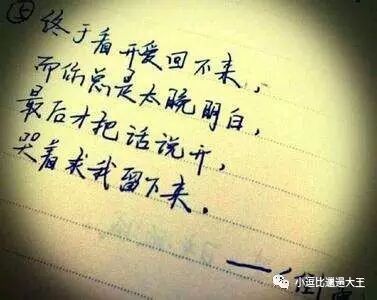 ⑤终于看开爱回不来，
而你总是太晚明白，
最后才把话说开，
哭着求我留下来，
小逗比邋遢大王